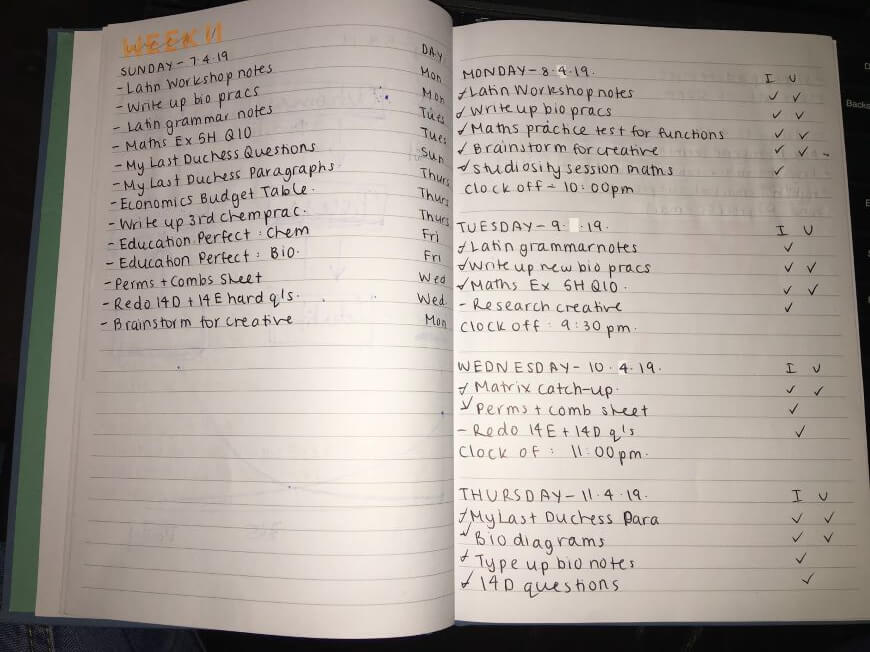 WEEK 11
SUNDAY - 7.4.19 DAY
- Latin Workshop notes Mon
- Write up bio pracs Mon
- Latin grammar notes Tues
- Maths Ex 5H Q10 Tues
- My Last Duchess Questions Sun
- My Last Duchess Paragraphs Thurs
- Economics Budget Table. Thurs
- Write up 3rd chem prac. Thurs
- Education Perfect : Chem Fri
- Education Perfect : Bio. Fri
- Perms + Combs Sheet Wed
- Redo 14D + 14E hard q's. Wed
- Brainstorm for creative Mon
MONDAY - 8.4.19. I U
✓ Latin Workshop notes ✓ ✓
✓ Write up bio pracs ✓ ✓
✓ Maths practice test for functions ✓ ✓
✓ Brainstorm for creative ✓ ✓ -
✓ Studiosity session maths ✓
Clock off - 10:00pm
TUESDAY - 9. .19. I U
✓ Latin grammar notes ✓
✓ Write up new bio pracs ✓ ✓
✓ Maths Ex 5H Q10. ✓ ✓
- Research creative ✓
Clock off : 9:30pm.
WEDNESDAY - 10.4.19. I U
✓ Matrix catch-up. ✓ ✓
✓ Perms + comb sheet ✓
- Redo 14E + 14D q's ✓
Clock of : 11:00pm.
THURSDAY - 11.4.19. I U
✓ My Last Duchess Para ✓ ✓
✓ Bio diagrams ✓ ✓
✓ Type up bio notes ✓
✓ 14D questions ✓
Backs